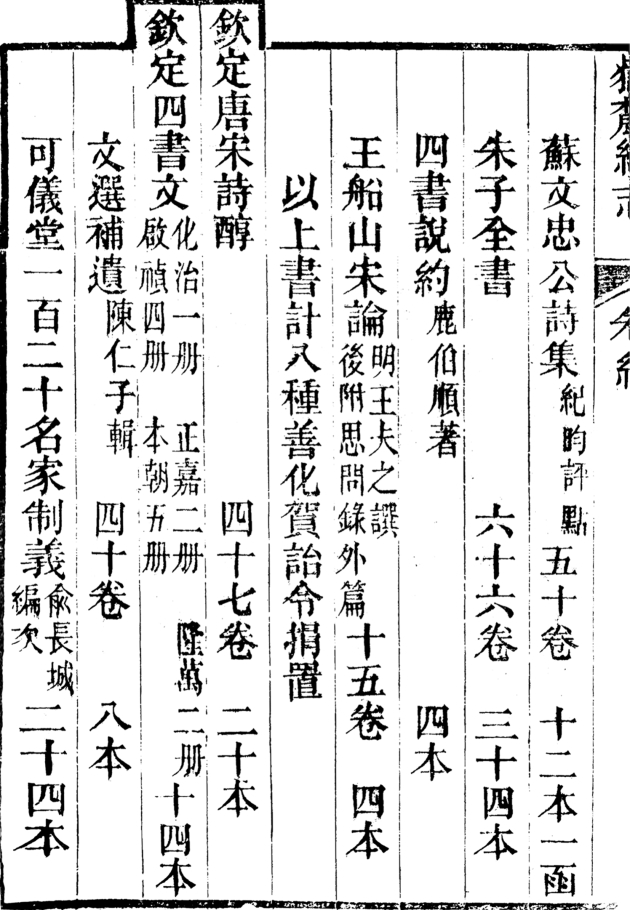 蘇文忠公詩集 紀昀評點 五十卷 十二本一函
朱子全書 六十六卷 三十四本
四書說約 鹿伯順著 四本
王船山宋論 明王夫之譔 後附思問錄外篇 十五卷 四本
以上書計八種善化賀詒令捐置
欽定唐宋詩醇 四十七卷 二十本
欽定四書文 化治一册 正嘉二册 隆萬二册 啟禎四册 本朝五册 十四本
文選補遺 陳仁子輯 四十卷 八本
可儀堂一百二十名家制義 俞長城編次 二十四本